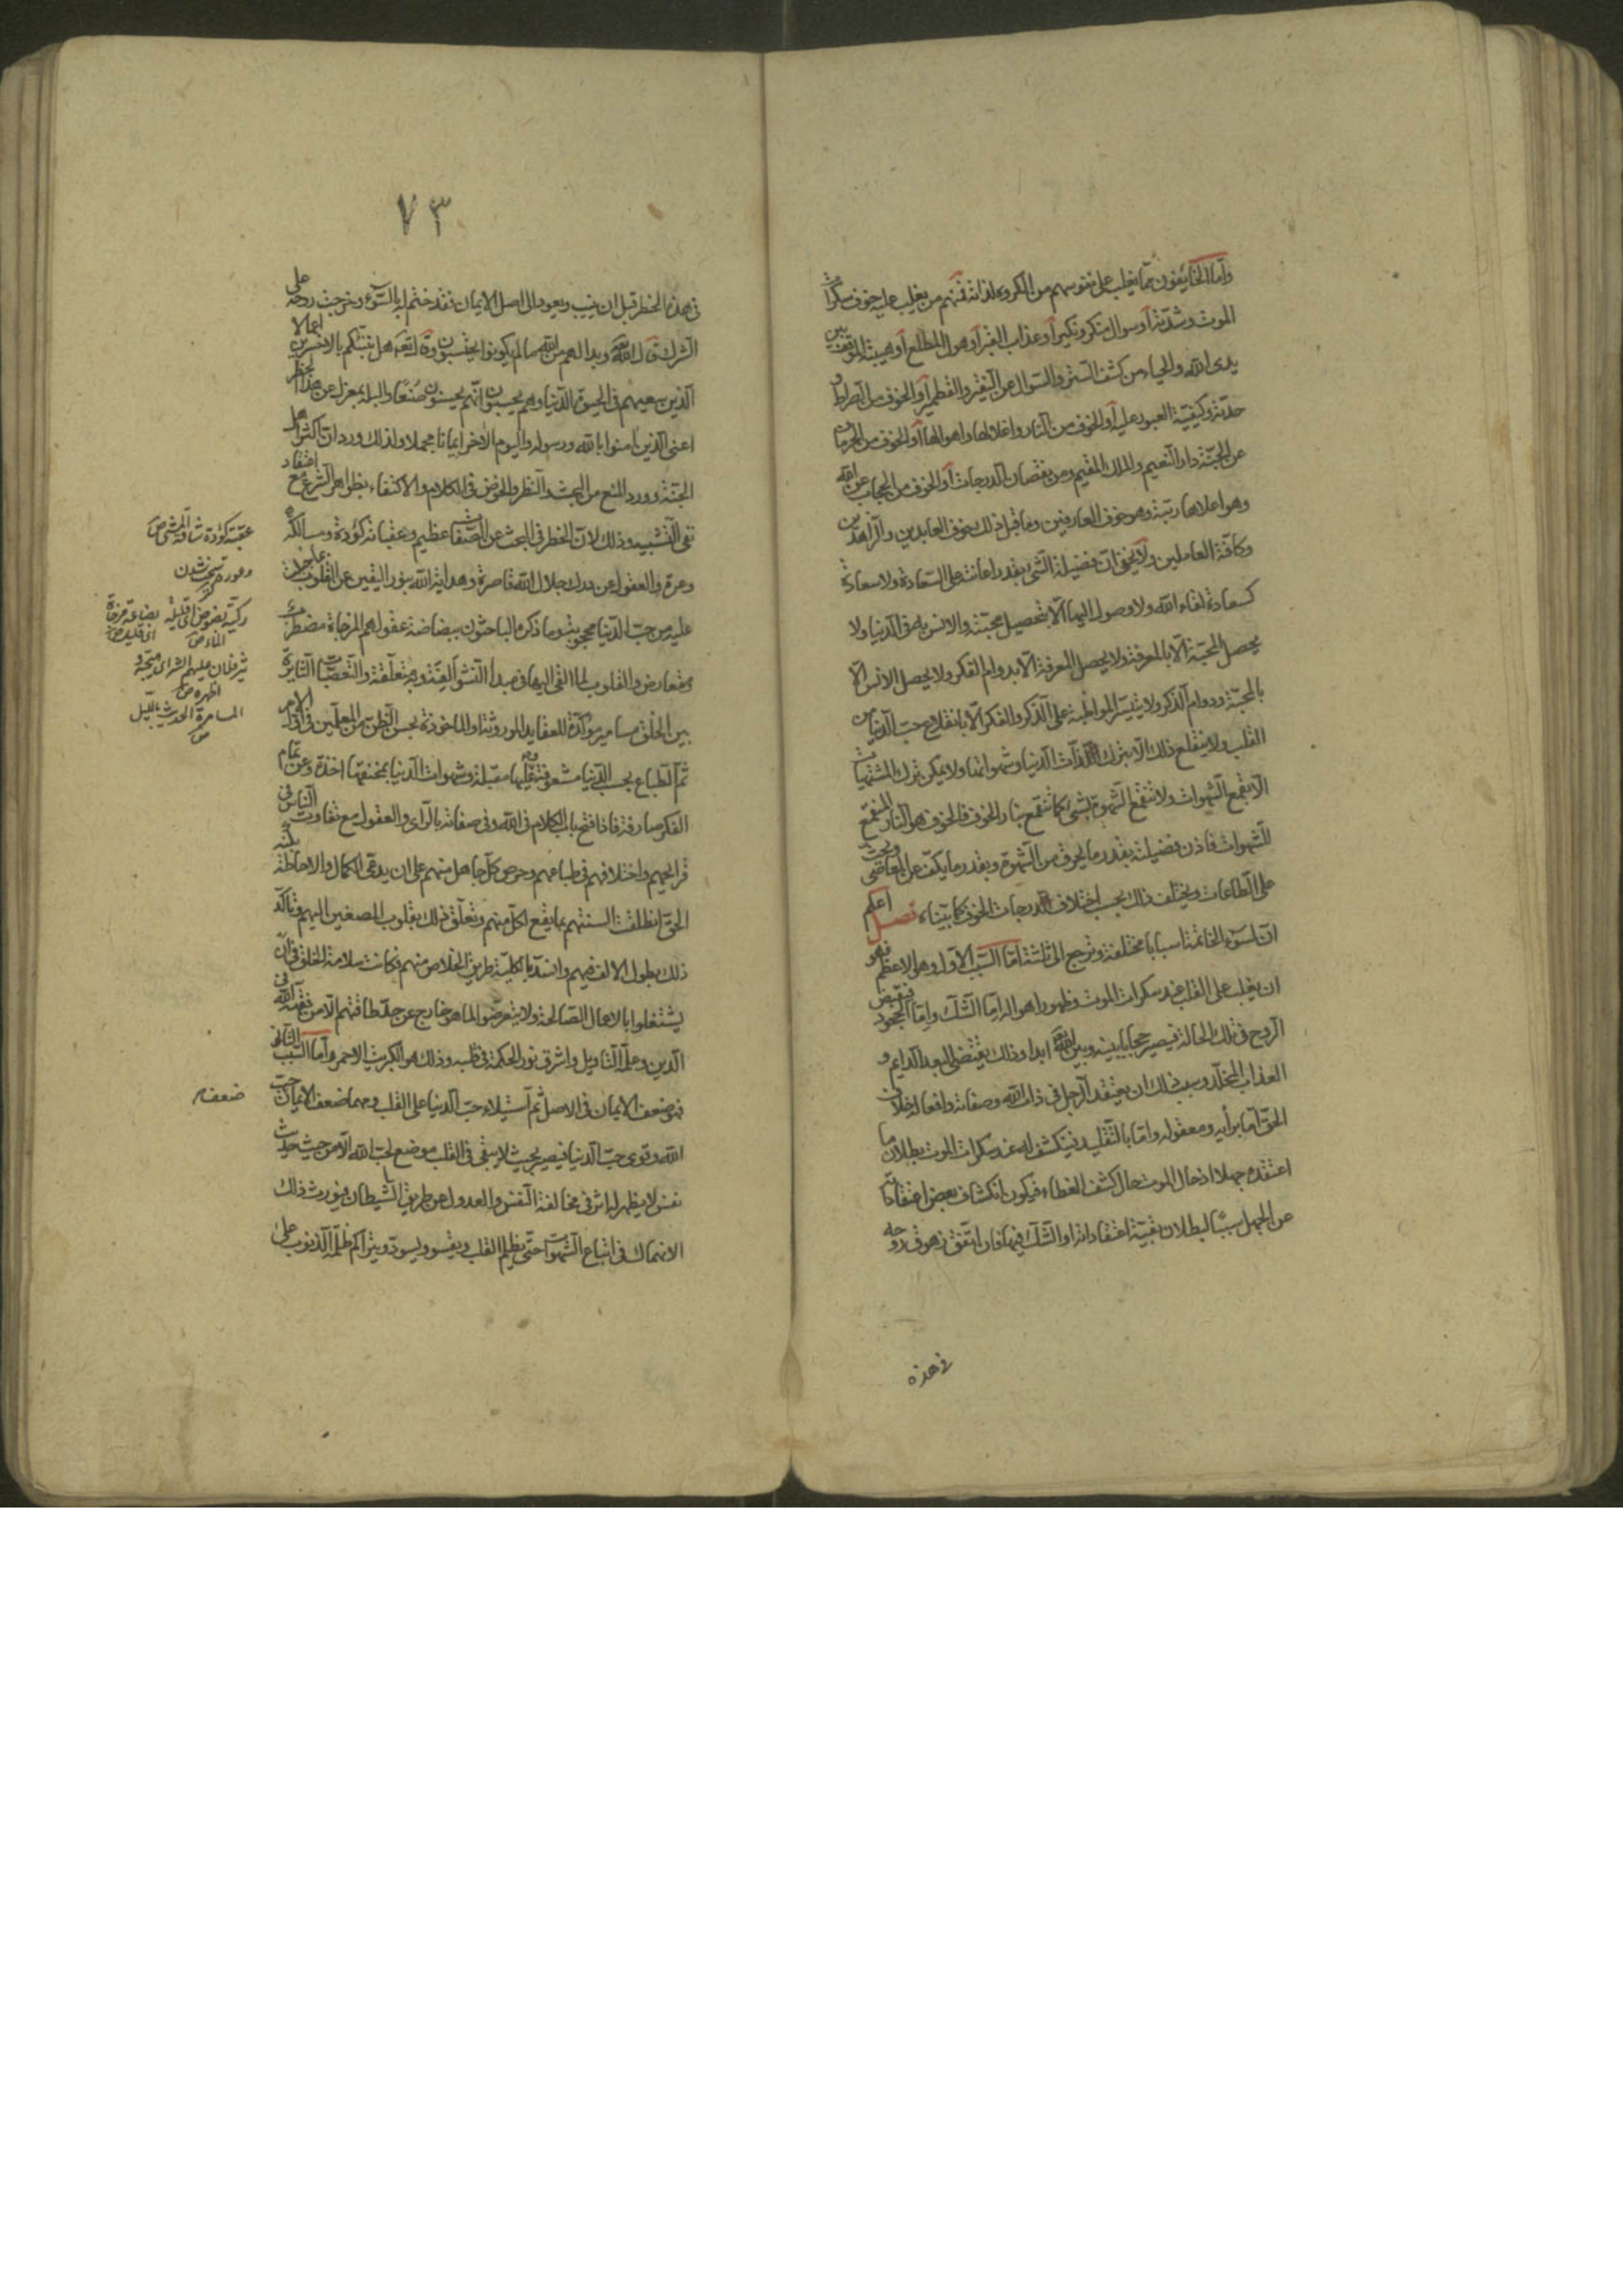 وأما الخايفون مما يغلب على نفوسهم من المكروه لذاته فمنهم من يغلب عليه خوف سكرات
الموت وشدته أو سوال منكر ونكير أو عذاب القبر أو هول المطلع أو هيبة الموقف بين
يدى الله والحياء من كشف الستر والسوال عن النقير والقطمير أو الخوف من الصراط و
حدته وكيفية العبور عليه أو الخوف من النار واغلالها واهوالها أو الخوف من الحرمان
عن الجنة دار النعيم والملك المقيم ومن نقصان الدرجات أو الخوف من الحجاب عن الله
وهو اعلاها رتبة وهو خوف العارفين وما قبل ذلك خوف العابدين والزاهدين
وكافة العاملين ولا يخفى ان فضيلة الشئ بقدر اعانته على السعادة ولا سعادة
كسعادة لقاء الله ولا وصول اليها الا بتحصيل محبته والانس به فى الدنيا ولا
يحصل المحبة الا بالمعرفة ولا يحصل المعرفة الا بدوام الفكر ولا يحصل الانس الا
بالمحبة ودوام الذكر ولا يتيسر المواظبة على الذكر والفكر الا بانقلاع حب الدنيا من
القلب ولا ينقلع ذلك الا بترك لذات الدنيا وشهواتها ولا يمكن ترك المشتهيات
الا بقمع الشهوات ولا تنقمع الشهوة بشئ كما تنقمع بنار الخوف فالخوف هو النار
للشهوات فاذن فضيلته بقدر ما يحرق من الشهوة وبقدر ما يكف عن المعاصى ويحث
على الطاعات ويختلف ذلك بحسب اختلاف درجات الخوف كما بيناه فصل اعلم
ان لسوء الخاتمة اسبابا مختلفة وترجع الى ثلثة اما السبب الاول وهو الاعظم فهو
ان يغلب على القلب عند سكرات الموت وظهور اهواله اما الشك واما الجحود فيقبض
الروح فى تلك الحالة فيصير حجابا بينه وبين الله ابدا وذلك يقتضى البعد الدايم و
العذاب المخلد وسبب ذلك ان يعتقد الرجل فى ذات الله وصفاته وافعاله خلاف
الحق اما برأيه ومعقوله واما بالتقليد فينكشف له عند سكرات الموت بطلان ما
اعتقده جهلا اذ حال الموت حال كشف الغطاء فيكون انكشاف بعض اعتقاداته
عن الجهل سببا لبطلان بقية اعتقاداته او الشك فيها فان اتفق زهوق روحه
فى هذه
٧٣
فى هذه الخطر قبل ان ينيب ويعود الى اصل الايمان فقد ختم له بالسوء وخرجت روحه على
الشرك قال الله وبدا لهم من الله ما لم يكونوا يحتسبون وقال هل ننبئكم بالاخسرين اعمالا
الذين سعيهم فى الحيوة الدنيا وهم يحسبون انهم يحسنون صنعا والبله بمعزل عن هذا الخطر
اعنى الذين امنوا بالله ورسوله واليوم الاخر ايمانا مجملا ولذلك ورد ان اكثر اهل
الجنة وورد المنع من البحث والنظر والخوض فى الكلام والاكتفاء بظواهر الشرع مع اعتقاد
نفى التشبيه وذلك لان الخطر فى البحث عن الصفات عظيم وعقباته كؤدة ومسالكه
وعرة والعقول عن درك جلال الله قاصرة وهداية الله بنور اليقين عن القلوب
عليه من حب الدنيا محجوبة وما ذكره الباحثون ببضاعة عقولهم المزجاة مضطرب
ومتعارض والقلوب لما القى اليها فى مبدأ النشو الفة وبه متعلقة والتعصبات الثايرة
بين الخلق مسامير مؤكدة للعقايد الموروثة او الماخوذة بحسن الظن من المعلمين فى اول الامر
ثم الطباع بحب الدنيا مشعوفة وعليها مقبلة وشهوات الدنيا بمخنقها اخذة وعن تمام
الفكر صارفة فاذا فتح باب الكلام فى الله وفى صفاته بالراى والعقول مع تفاوت الناس فى
قرايحهم واختلافهم فى طباعهم وحرص كل جاهل منهم على ان يدعى الكمال والاحاطة بكنه
الحق انطلقت السنتهم بما يقع لكل منهم وتعلق ذلك بقلوب المصغين اليهم وتأكد
ذلك بطول الالف فيهم وانسد بالكلية طريق الخلاص منهم فكانت سلامة الخلق فى ان
يشتغلوا بالاعمال الصالحة ولا يتعرضوا لما هو خارج عن حد طاقتهم الا من فقهه الله فى
الدين وعلمه التاويل واشرق نور الحكمة فى قلبه وذلك هو الكبريت الاحمر واما السبب الثانى
فهو ضعف الايمان فى الاصل ثم استيلاء حب الدنيا على القلب ومهما ضعف الايمان ضعف حب
الله وقوى حب الدنيا فيصير بحيث لا يبقى فى القلب موضع لحب الله الا من حيث حديث
نفس لا يظهر له اثر فى مخالفة النفس والعدول عن طريق الشيطان فيورث ذلك
الانهماك فى اتباع الشهوات حتى يظلم القلب ويقسو ويسود ويتراكم ظلمة الذنوب على
عقبة كؤدة شاقة المشى ص
بضاعة مزجاة
اى قليلة ص
المسامرة الحديث بالليل
ص
ضعف